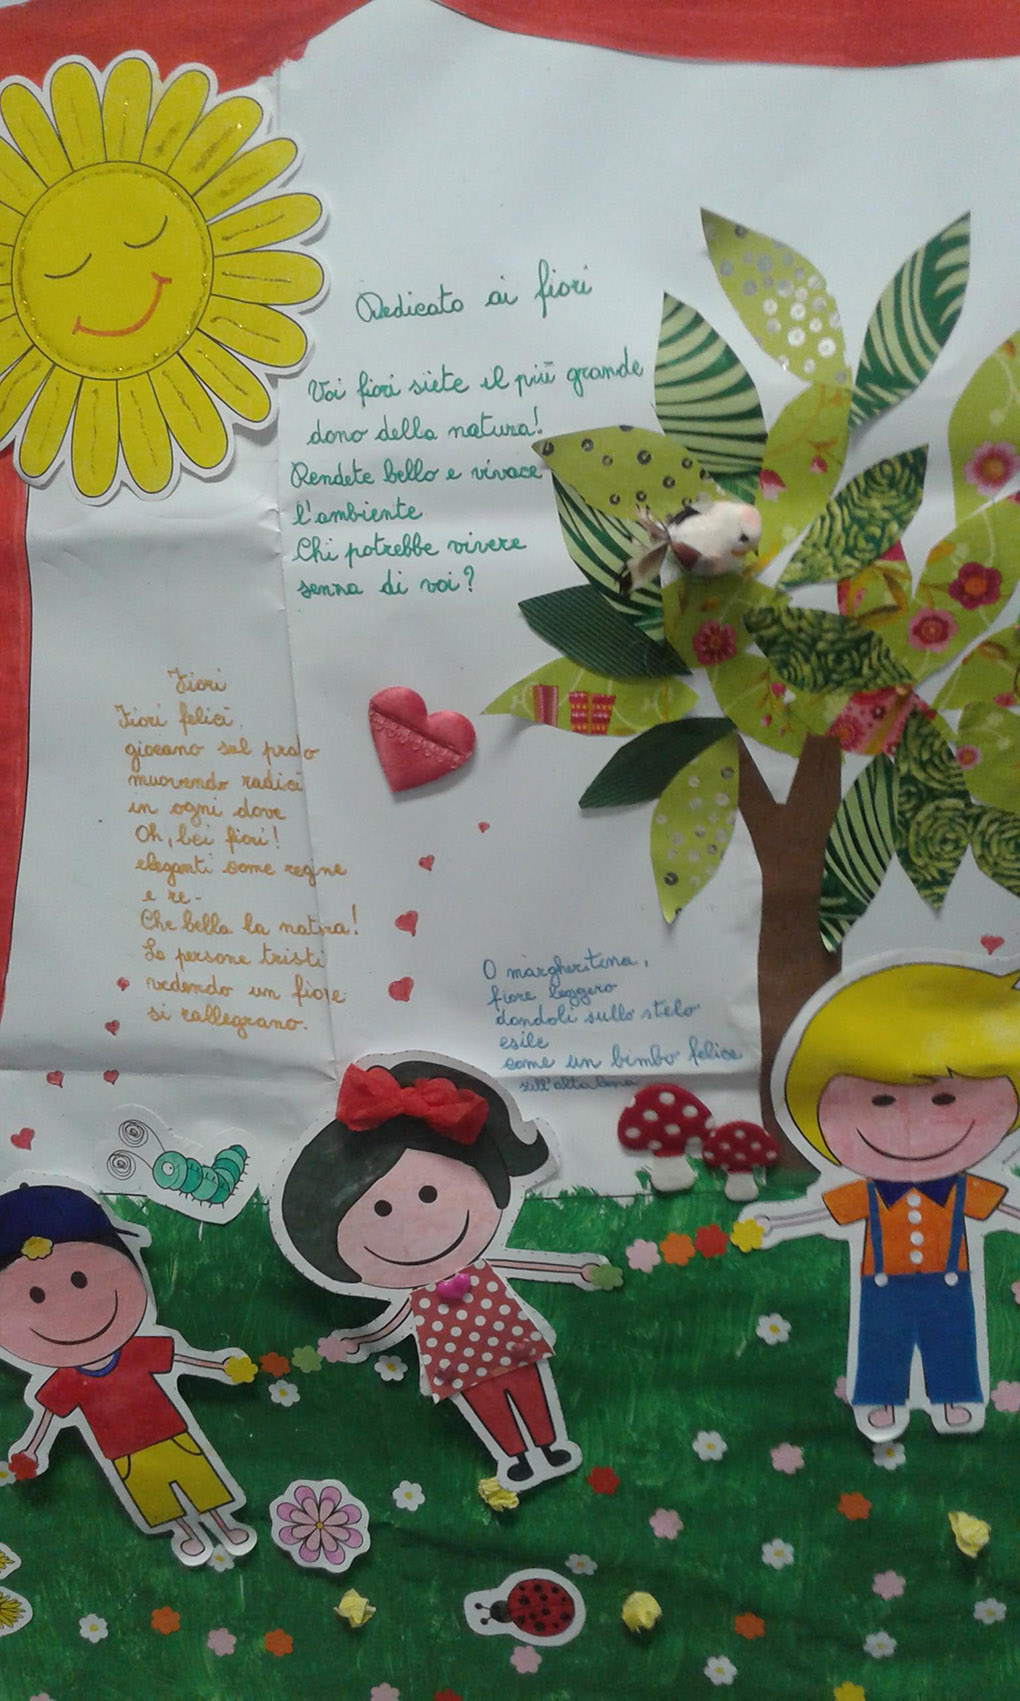 Dedicato ai fiori
Voi fiori siete il più grande
dono della natura!
Rendete bello e vivace
l'ambiente
Chi potrebbe vivere
senza di voi?
Fiori
Fiori felici,
giocano sul prato
muovendo radici
in ogni dove
Oh, bei fiori!
eleganti come regine
e re-
Che bella la natura!
Le persone tristi
vedendo un fiore
si rallegrano.
O margheritina,
fiore leggero
dondoli sullo stelo
esile
come un bimbo felice
sull'altalena